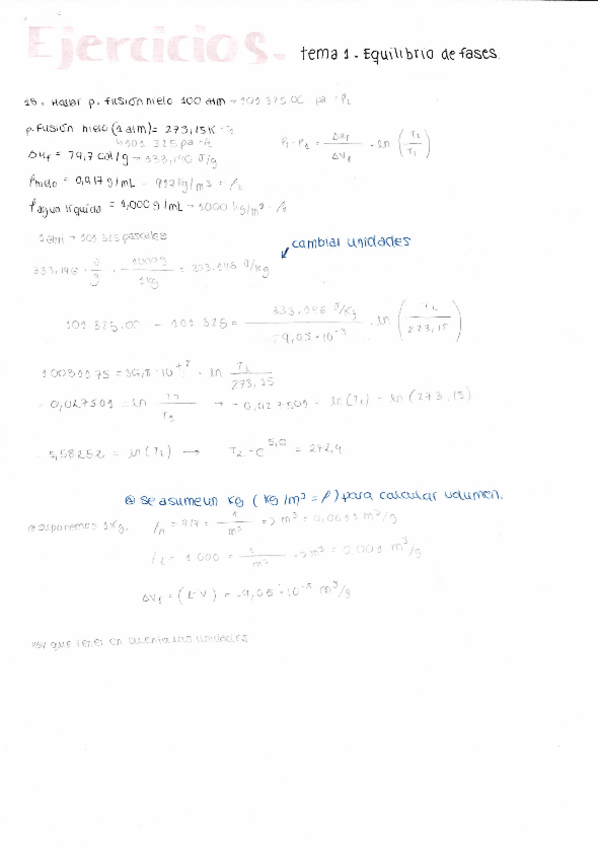 Ejercicios. tema 1 - Equilibrio de fases.
15. Hallar p. fusión hielo 100 atm → 101 325.00 pa = P2
p. fusión hielo (1 atm) = 273,15K = T1
↳ 101 325 pa = P1
P1 - P2 = ΔHf / ΔVf · ln (T2 / T1)
ΔHf = 79,7 cal/g → 333,146 J/g
ρhielo = 0,917 g/mL - 917 kg/m³ = ρ2
ρagua líquida = 1,000 g/mL → 1000 kg/m³
1 atm → 101 325 pascales
cambiar unidades
333.146 · J/g · 1000g / 1kg = 333.146 J/kg
101 325.00 - 101 325 = 333.146 J/Kg / 9,05·10⁻⁵ · ln (T2 / 273,15)
10031175 = 36,8·10⁺⁸ · ln T2 / 273,15
→ ln(T2) - ln(273,15)
5,58252 = ln(T2) → T2 = e = 272,4
se asume un kg (kg/m³ = ρ) para calcular volumen.
suponemos 1Kg. ρH = 917 = 1 / m³ => m³ = 0,0011 m³/g
ρL = 1.000 = 1 / m³ => m³ = 0,001 m³/g
ΔVf = (L - V) = -9,05·10⁻⁵ m³/g
Hay que tener en cuenta las unidades